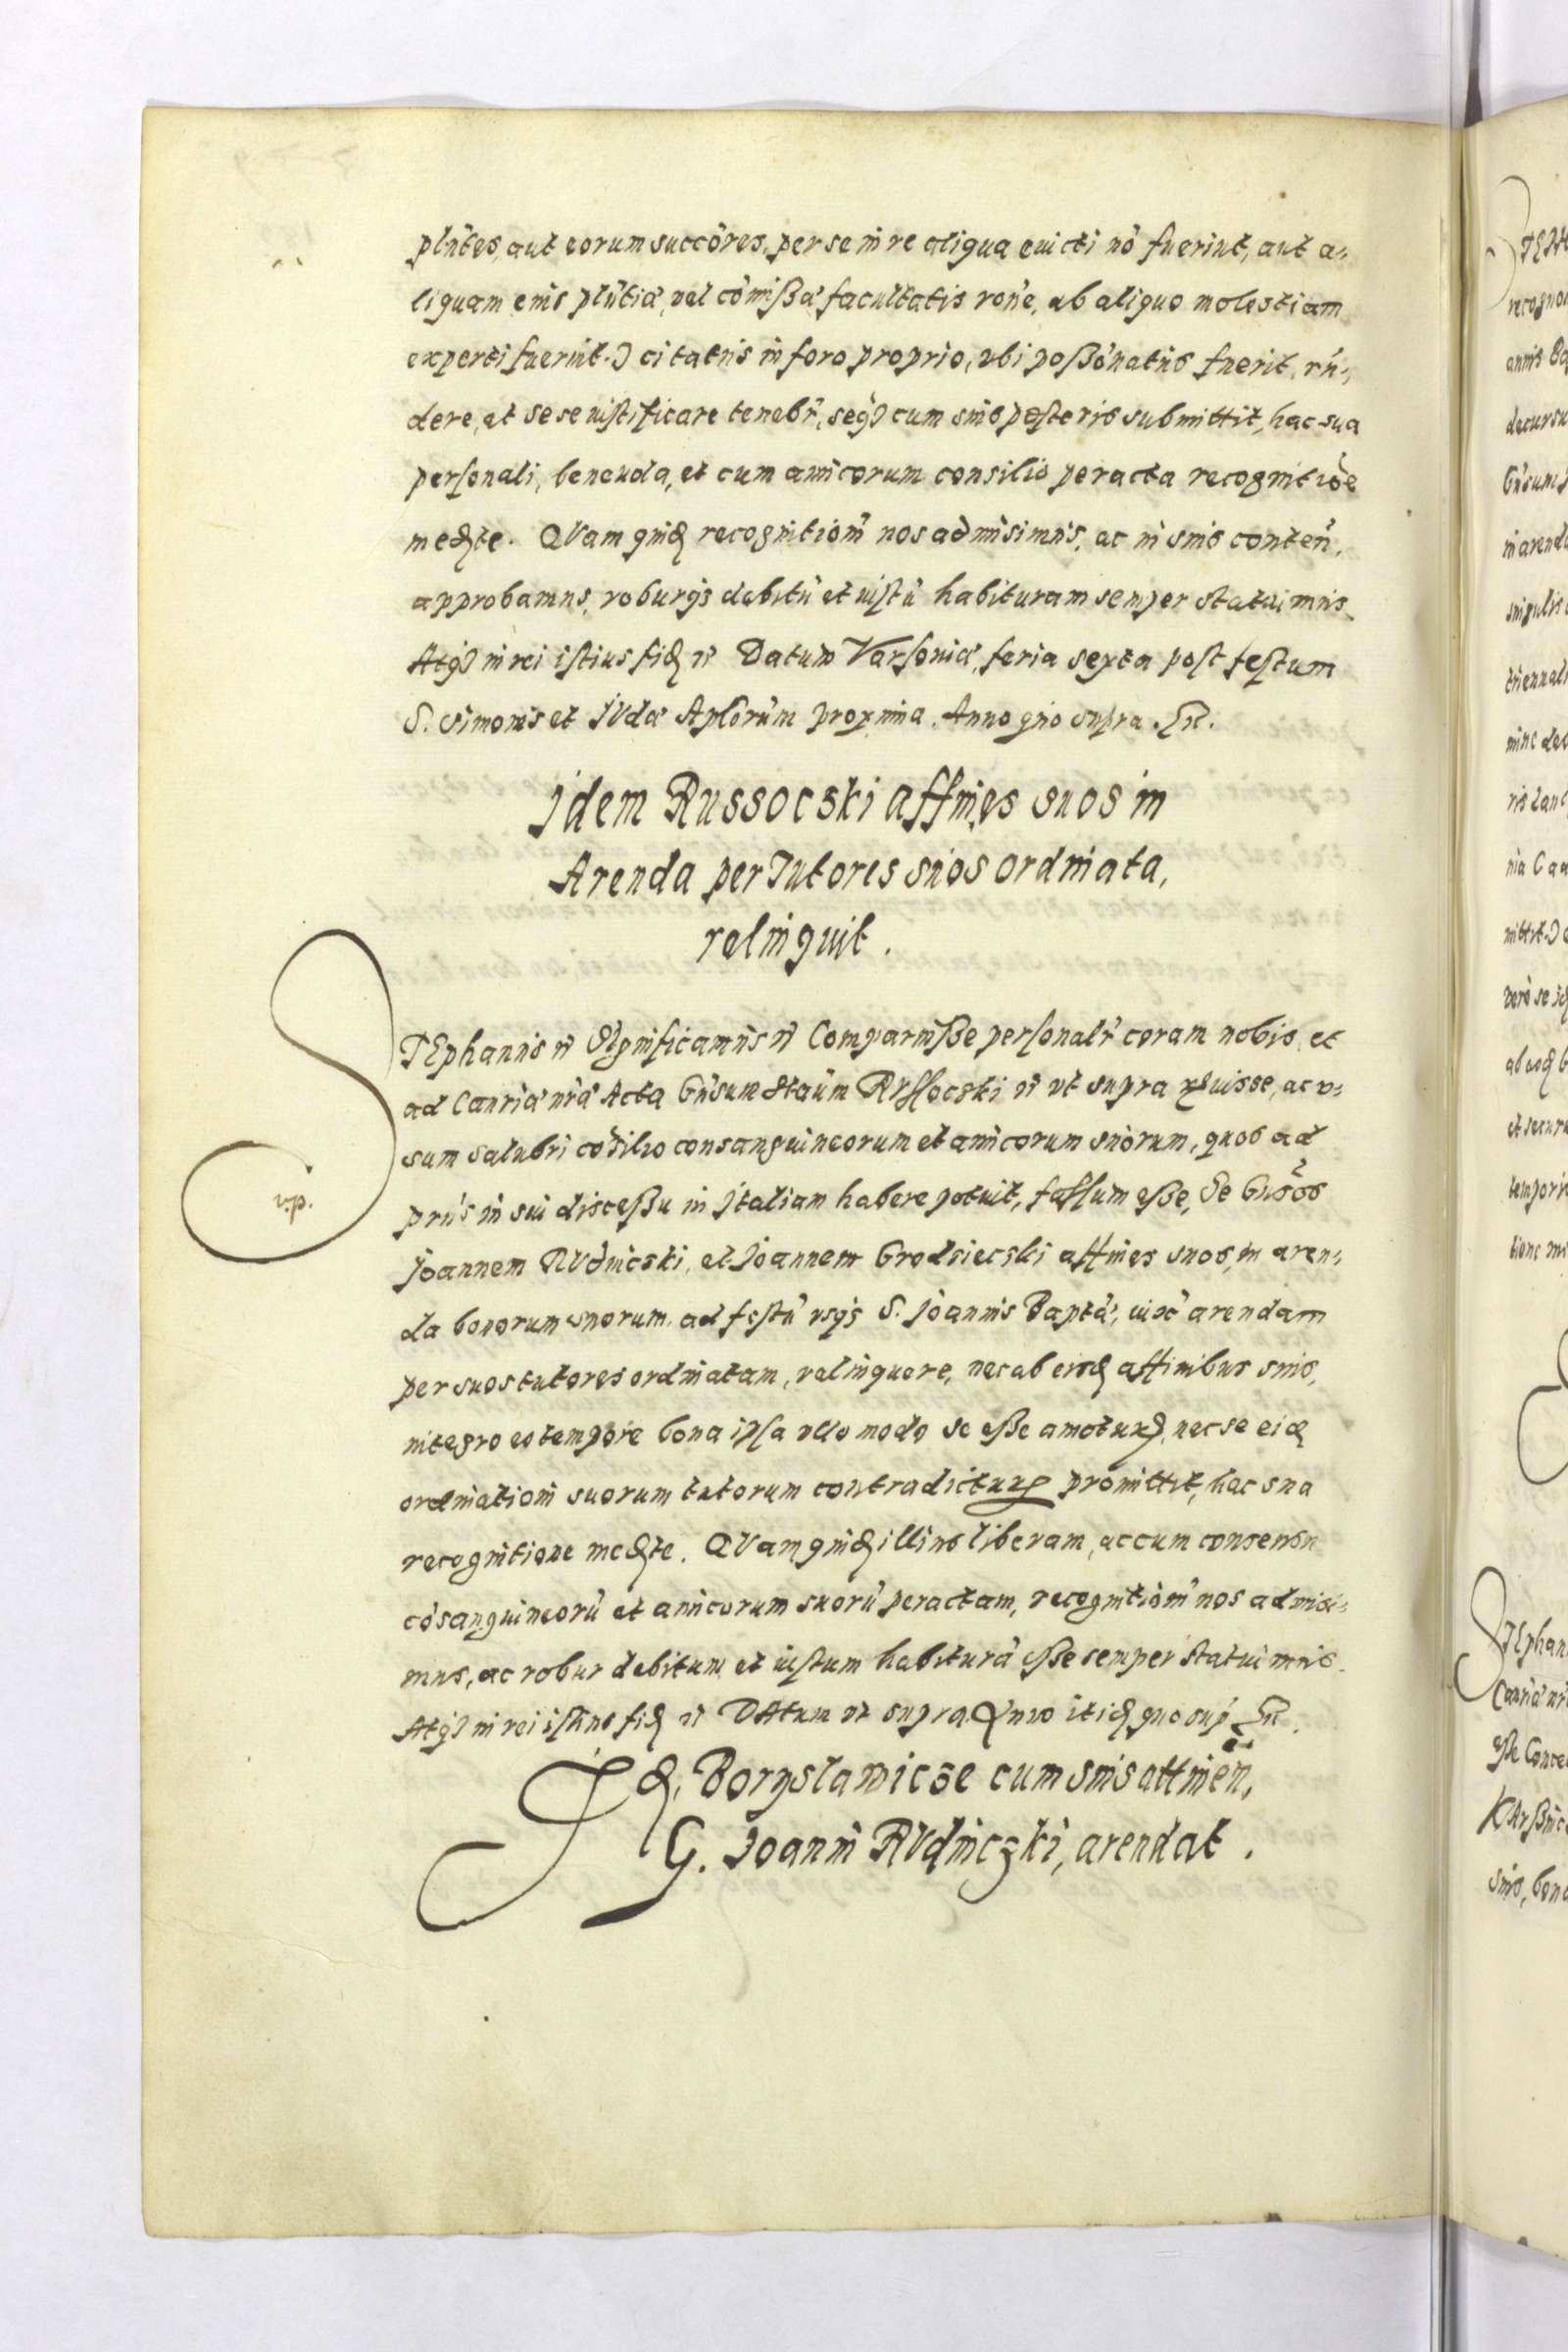 plntes, aut eorum succores, per se in re aliqua euicti nō fuerint, aut a-
liquam eius plntiā, vel cōmißā facultatis rone, ab aliquo molestiam
experti fuerint. citatus in foro proprio, vbi poßonatus fuerit, rn-
dere, et sese iustificare tenebr, seq cum suis posteris submittit, hac sua
personali, beneuola, et cum amicorum consilio peracta recognitioe
medte. QVam quid recognitiom nos admisimus, ac in suis conten,
approbamus, roburq debitū et iustū habituram semper statuimus
Atq in rei istius fid Datum Varsouiæ, feria sexta post festum
S. Simonis et IVdæ Aplorum proxima. Anno quo supra.
Idem Russocski affines suos in
Arenda per Tutores suos ordinata,
relinquit.
STEphanus Significamus Comparuiße personalr coram nobis et
ad Canriā nrā Acta Gnsum Staūm RVssocski vt supra, ac v-
sum salubri cōsilio consanguineorum et amicorum suorum, quos ad
prns in sui disceßu in Italiam habere potuit, fassum eße, Se Gnsos
Joannem RVdnicski, et Joannem Grodsiecski affines suos, in aren-
da bonorum suorum, ad festū vsq S. Joannis Baptæ, iuxā arendam
per suos tutores ordinatam, relinquere, nec ab eisd affinibus suis,
integro eo tempore bona ipsa vllo modo se eße amoturū, nec se eid
ordinationi suorum tutorum contradicturū promittit, hac sua
recognitione medte. QVam quid illius liberam, ac cum consensu
cōsanguineorū et amicorum suorū peractam, recognitiom nos admisi-
mus, ac robur debitum et iustum habiturā eße semper statuimus.
Atq in rei istius fid DAtum vt supra Anno itid quo sup
Id. Boryslawicze cum suis attinen,
G. Joanni RVdniczki, arendat.